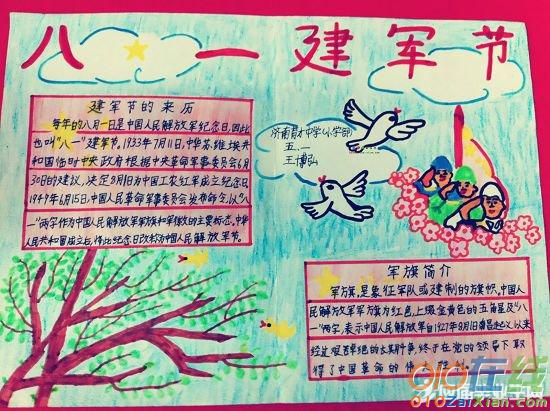 八一建军节
建军节的来历
每年的八月一日是中国人民解放军纪念日,因此
也叫"八一"建军节。1933年7月11日,中华苏维埃共
和国临时中央政府根据中央革命军事委员会6月
30日的建议,决定8月1日为中国工农红军成立纪念日。
1949年6月15日,中国人民革命军事委员会发布命令,以"八
一"两字作为中国人民解放军军旗和军徽的主要标志。中华
人民共和国成立后,将此纪念日改称为中国人民解放军建军节。
济南育才中学(小学部)
五.一
王博弘
军旗简介
军旗,是象征军队或建制的旗帜,中国人
民解放军军旗为红色,上缀金黄色的五角星及"八
一"两字,表示中国人民解放军自1927年8月1日南昌起义以来
经过艰苦卓绝的太其斗争,终于在党的领导下取
得了中国革命的伟
010在线
010ZaiXian.com